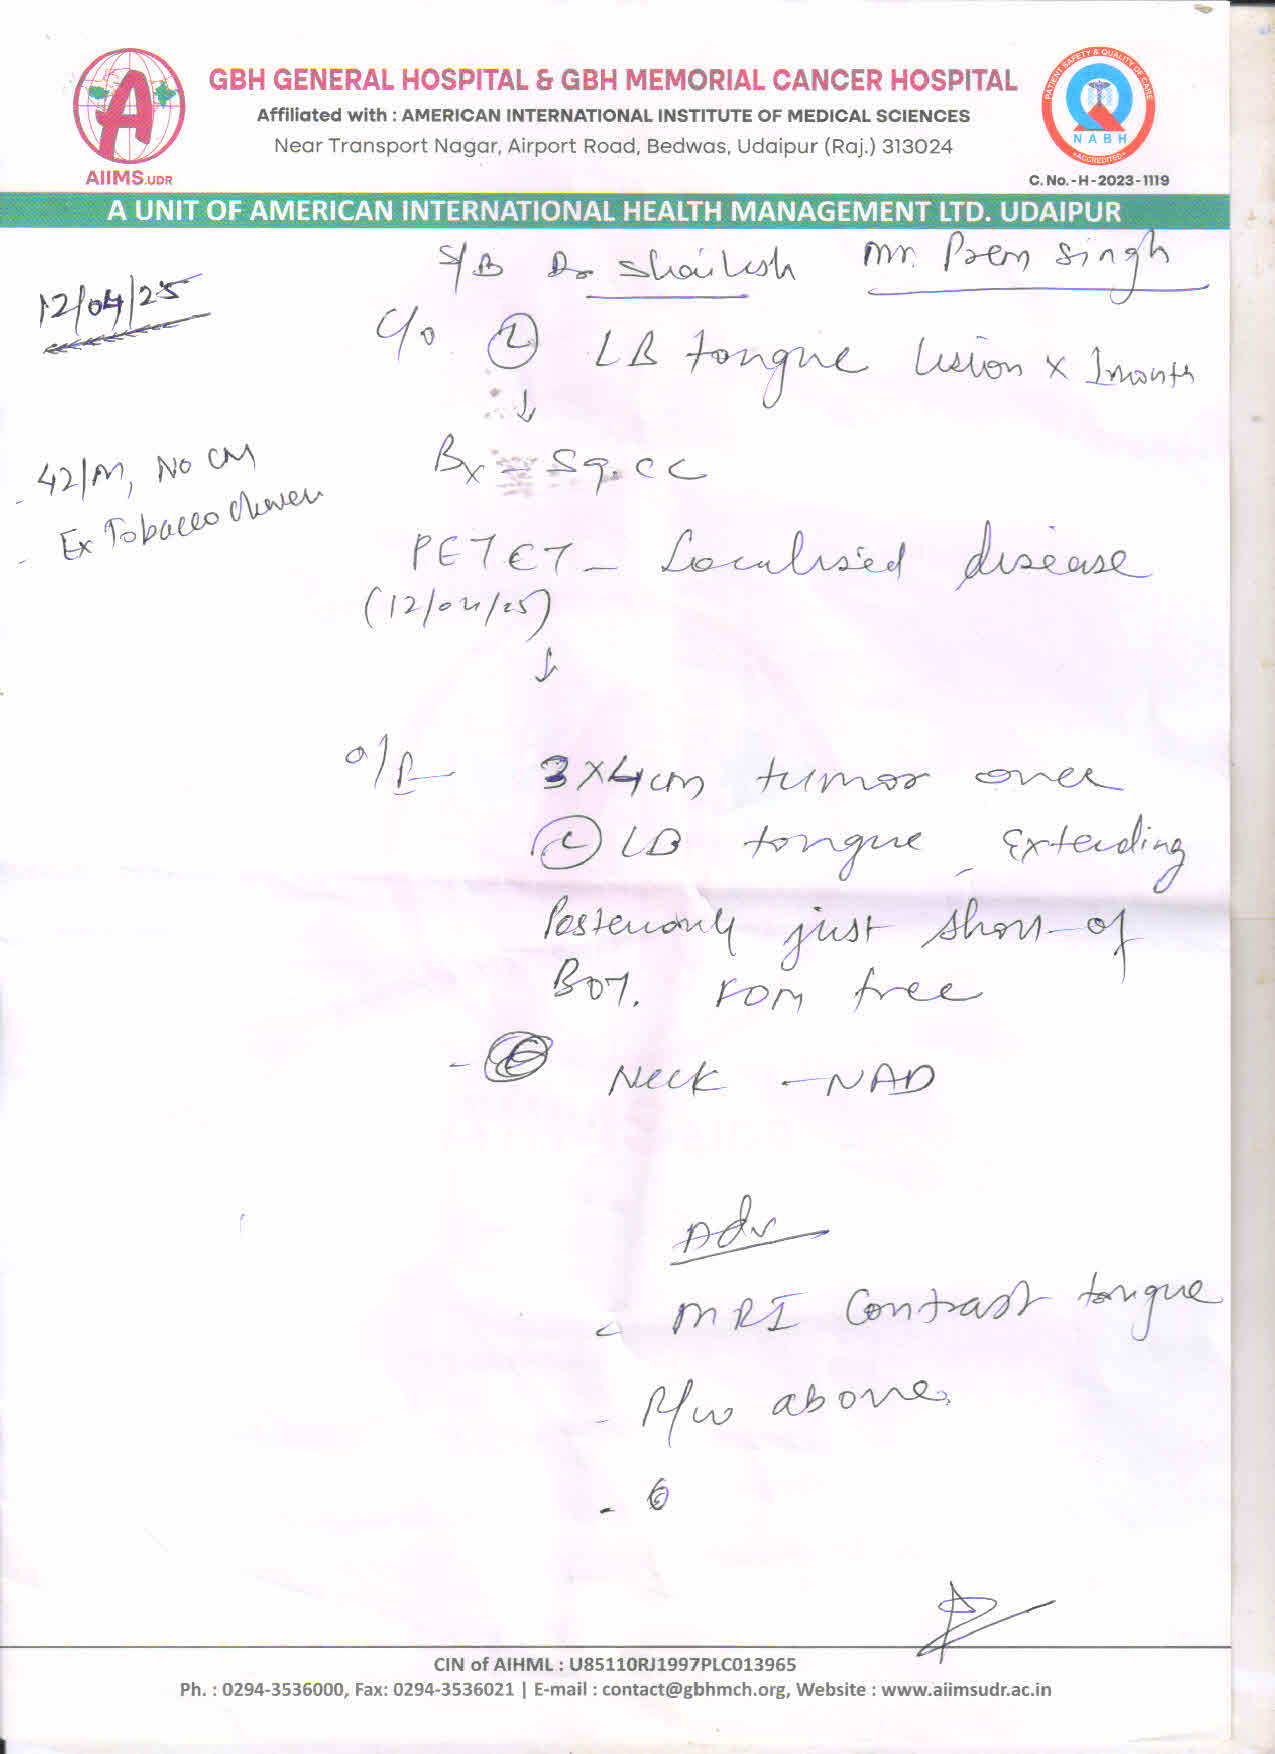 GBH GENERAL HOSPITAL & GBH MEMORIAL CANCER HOSPITAL
Affiliated with : AMERICAN INTERNATIONAL INSTITUTE OF MEDICAL SCIENCES
Near Transport Nagar, Airport Road, Bedwas, Udaipur (Raj.) 313024
AIIMS.UDR
PATIENT SAFETY & QUALITY OF CARE
NABH
ACCREDITED
C. No.-H-2023-1119
A UNIT OF AMERICAN INTERNATIONAL HEALTH MANAGEMENT LTD. UDAIPUR
S/B Dr Shailesh Mr. Prem Singh
12/04/25
C/o (L) LB tongue lesion x 1month
↓
42/M, No CM
Ex Tobacco chewer
Bx - Sq. CC
PETCT - Localised disease
(12/04/25)
↓
O/E 3x4cm tumor over
(L) LB tongue Extending
Posteriorly just short of
BOT. ROM free
- Neck - NAD
Adv
- MRI Contrast tongue
- R/w above.
CIN of AIHML : U85110RJ1997PLC013965
Ph. : 0294-3536000, Fax: 0294-3536021 | E-mail : contact@gbhmch.org, Website : www.aiimsudr.ac.in